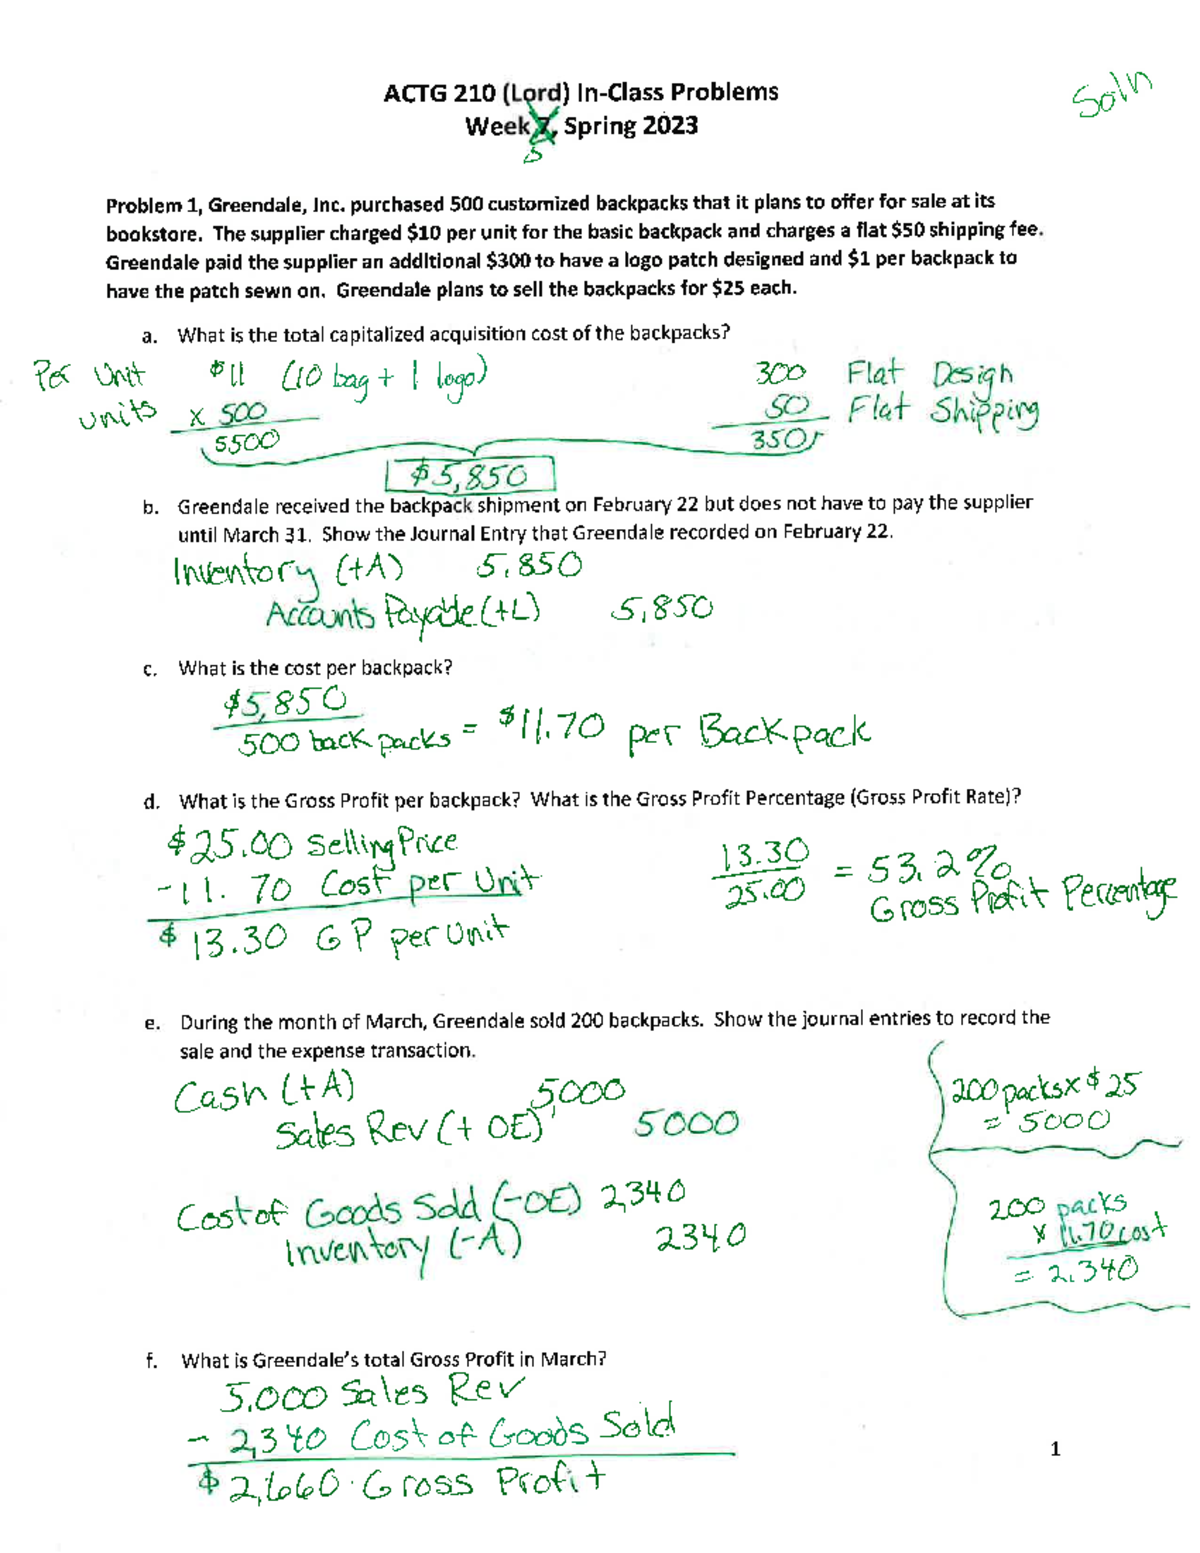 ACTG 210 (Lord) In-Class Problems
Soln
Week 7, Spring 2023
5
Problem 1, Greendale, Inc. purchased 500 customized backpacks that it plans to offer for sale at its
bookstore. The supplier charged $10 per unit for the basic backpack and charges a flat $50 shipping fee.
Greendale paid the supplier an additional $300 to have a logo patch designed and $1 per backpack to
have the patch sewn on. Greendale plans to sell the backpacks for $25 each.
a. What is the total capitalized acquisition cost of the backpacks?
Per Unit $11 (10 bag + 1 logo) 300 Flat Design
units x 500 50 Flat Shipping
5500 350
$5,850
b. Greendale received the backpack shipment on February 22 but does not have to pay the supplier
until March 31. Show the Journal Entry that Greendale recorded on February 22.
Inventory (+A) 5,850
Accounts Payable (+L) 5,850
c. What is the cost per backpack?
$5,850
500 backpacks = $11.70 per Backpack
d. What is the Gross Profit per backpack? What is the Gross Profit Percentage (Gross Profit Rate)?
$25.00 Selling Price 13.30
-11.70 Cost per Unit 25.00 = 53.2%
$13.30 GP per Unit Gross Profit Percentage
e. During the month of March, Greendale sold 200 backpacks. Show the journal entries to record the
sale and the expense transaction.
Cash (+A) 5000 200 packs x $25
Sales Rev (+OE) 5000 = 5000
Cost of Goods Sold (-OE) 2,340 200 packs
Inventory (-A) 2340 x 11.70 cost
= 2,340
f. What is Greendale's total Gross Profit in March?
5,000 Sales Rev
- 2,340 Cost of Goods Sold
$2,660 Gross Profit
1